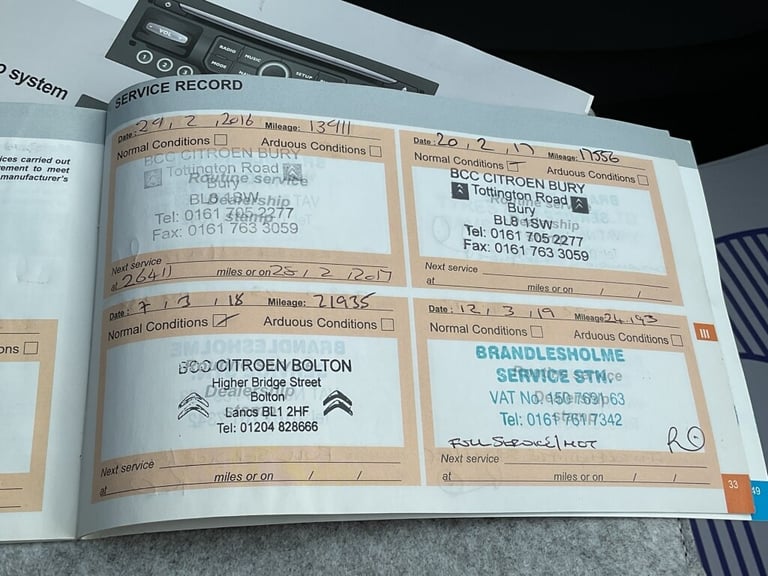 VOL
RADIO
MUSIC
MODE
SETUP
1
2
o system
ices carried out
rement to meet
manufacturer's
ons
SERVICE RECORD
Date: 29, 2, 2016 Mileage: 13911
Normal Conditions Arduous Conditions
BCC CITROEN BURY
Tottington Road
Routine service
Bury
BL8 1SW
Dealership
Tel: 0161 705 2277
stamp
Fax: 0161 763 3059
Next service
at 26411 miles or on 28, 2, 2017
Date: 20, 2, 17 Mileage: 17556
Normal Conditions Arduous Conditions
BCC CITROEN BURY
Tottington Road
Bury
BL8 1SW
Tel: 0161 705 2277
Fax: 0161 763 3059
Next service
at miles or on / /
Date: 7, 3, 18 Mileage: 21935
Normal Conditions Arduous Conditions
BCC CITROEN BOLTON
Higher Bridge Street
Dealership
Bolton
Lancs BL1 2HF
Tel: 01204 828666
Next service
at miles or on / /
Date: 12, 3, 19 Mileage: 24,193
Normal Conditions Arduous Conditions
BRANDLESHOLME
SERVICE STN.
VAT No. 150 7691 63
Tel: 0161 761 7342
FULL SERVICE/MOT
Next service
at miles or on / /
III
33
49